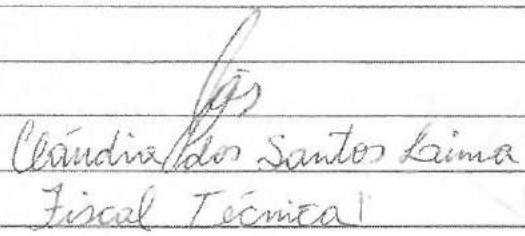 Cláudia dos Santos Lima
Fiscal Técnica